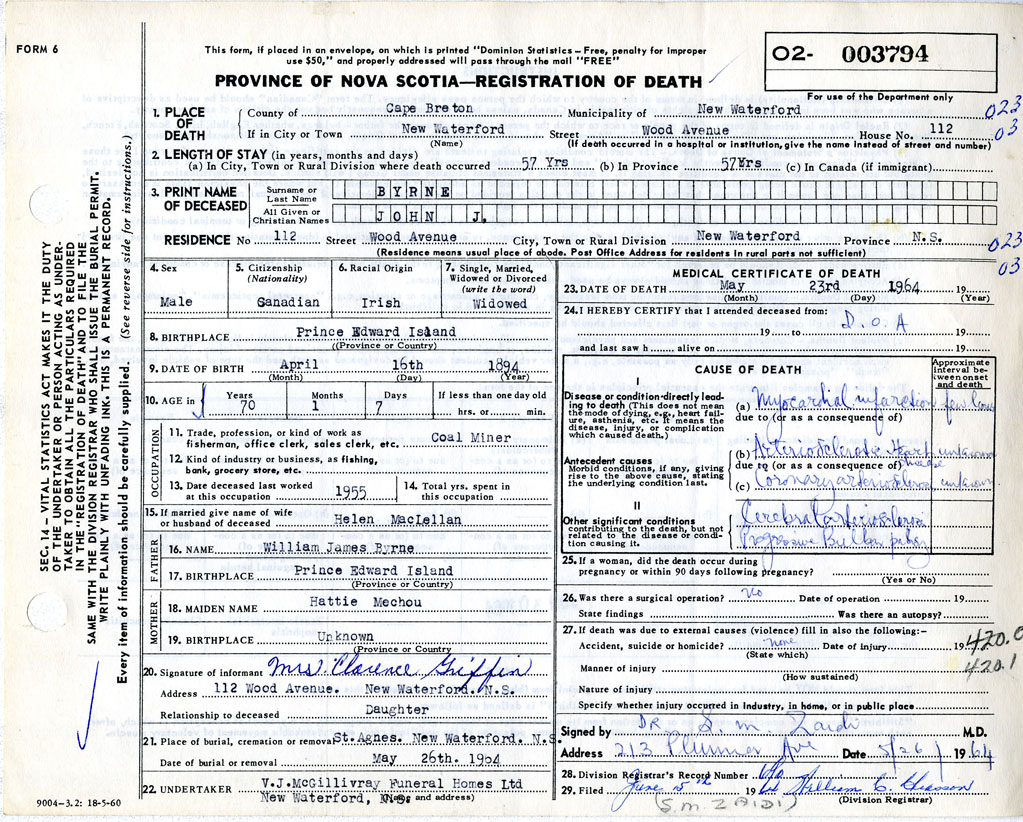 FORM 6
This form, if placed in an envelope, on which is printed "Dominion Statistics – Free, penalty for improper
use $50," and properly addressed will pass through the mail "FREE"
PROVINCE OF NOVA SCOTIA—REGISTRATION OF DEATH
O2- 003794
For use of the Department only
SEC. 14 – VITAL STATISTICS ACT MAKES IT THE DUTY
OF THE UNDERTAKER OR PERSON ACTING AS UNDER-
TAKER TO OBTAIN ALL THE PARTICULARS REQUIRED
IN THE "REGISTRATION OF DEATH" AND TO FILE THE
SAME WITH THE DIVISION REGISTRAR WHO SHALL ISSUE THE BURIAL PERMIT.
WRITE PLAINLY WITH UNFADING INK. THIS IS A PERMANENT RECORD.
Every item of information should be carefully supplied. (See reverse side for instructions.)
1. PLACE OF DEATH
County of Cape Breton Municipality of New Waterford 023
If in City or Town New Waterford Street Wood Avenue House No. 112 03
(Name) (If death occurred in a hospital or institution, give the name instead of street and number)
2. LENGTH OF STAY (in years, months and days)
(a) In City, Town or Rural Division where death occurred 57 Yrs (b) In Province 57Yrs (c) In Canada (if immigrant)
3. PRINT NAME OF DECEASED
Surname or Last Name BYRNE
All Given or Christian Names JOHN J.
RESIDENCE No 112 Street Wood Avenue City, Town or Rural Division New Waterford Province N.S. 023
(Residence means usual place of abode. Post Office Address for residents in rural parts not sufficient) 03
4. Sex
Male
5. Citizenship
(Nationality)
Canadian
6. Racial Origin
Irish
7. Single, Married,
Widowed or Divorced
(write the word)
Widowed
8. BIRTHPLACE Prince Edward Island
(Province or Country)
9. DATE OF BIRTH April 16th 1894
(Month) (Day) (Year)
10. AGE in Years 70 Months 1 Days 7 If less than one day old
hrs. or min.
OCCUPATION
11. Trade, profession, or kind of work as
fisherman, office clerk, sales clerk, etc. Coal Miner
12. Kind of industry or business, as fishing,
bank, grocery store, etc.
13. Date deceased last worked
at this occupation 1955
14. Total yrs. spent in
this occupation
15. If married give name of wife
or husband of deceased Helen MacLellan
FATHER
16. NAME William James Byrne
17. BIRTHPLACE Prince Edward Island
(Province or Country)
MOTHER
18. MAIDEN NAME Hattie Mechou
19. BIRTHPLACE Unknown
(Province or Country)
20. Signature of informant Mrs Clarence Griffin
Address 112 Wood Avenue. New Waterford. N.S.
Relationship to deceased Daughter
21. Place of burial, cremation or removal St. Agnes. New Waterford. N.S.
Date of burial or removal May 26th. 1964
22. UNDERTAKER V.J.McGillivray Funeral Homes Ltd
New Waterford, N.S. (Name and address)
9004-3.2: 18-5-60
MEDICAL CERTIFICATE OF DEATH
23. DATE OF DEATH May 23rd 1964 19
(Month) (Day) (Year)
24. I HEREBY CERTIFY that I attended deceased from:
D.O.A
19 to 19
and last saw h alive on 19
CAUSE OF DEATH
Approximate
interval be-
tween onset
and death
I
Disease or condition directly lead-
ing to death (This does not mean
the mode of dying, e.g., heart failure,
asthenia, etc. It means the
disease, injury, or complication
which caused death.)
(a) Myocardial infarction few
due to (or as a consequence of)
Antecedent causes
Morbid conditions, if any, giving
rise to the above cause, stating
the underlying condition last.
(b) Arteriosclerotic Heart disease unknown
due to (or as a consequence of)
(c) Coronary arteriosclerosis unknown
II
Other significant conditions
contributing to the death, but not
related to the disease or condi-
tion causing it.
Cerebral arteriosclerosis
Progressive Bulbar palsy
25. If a woman, did the death occur during
pregnancy or within 90 days following pregnancy?
(Yes or No)
26. Was there a surgical operation? No Date of operation 19
State findings Was there an autopsy?
27. If death was due to external causes (violence) fill in also the following:–
Accident, suicide or homicide? none Date of injury 19 420.0
(State which) 420.1
Manner of injury
(How sustained)
Nature of injury
Specify whether injury occurred in industry, in home, or in public place
Signed by DR. S. M. Zaidi M.D.
Address 213 Plummer Ave Date 5/26/ 1964
28. Division Registrar's Record Number
29. Filed June 5th 19 64 William C. Chiasson
(S.M. ZAIDI) (Division Registrar)